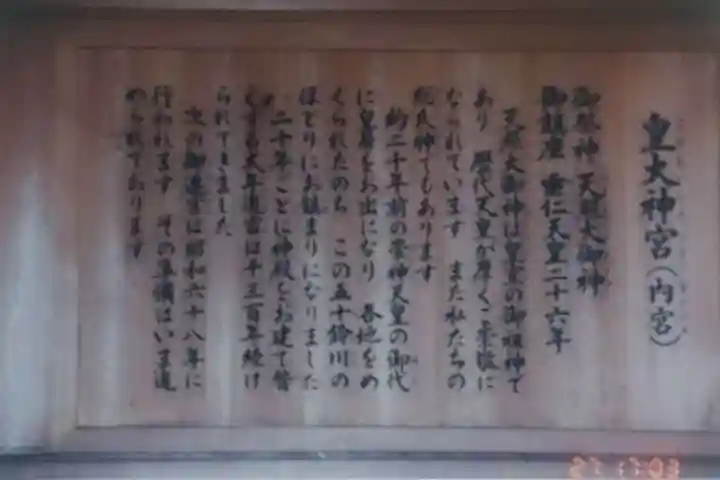 皇大神宮（内宮）
御祭神 天照大御神
御鎮座 垂仁天皇二十六年
天照大御神は皇室の御祖神で
あり 歴代天皇が厚くご崇敬に
なられています また私たちの
総氏神でもあります
約二千年前の崇神天皇の御代
に皇居をお出になり 各地をめ
ぐられたのち この五十鈴川の
ほとりにお鎮まりになりました
二十年ごとに神殿をお建て替
えする式年遷宮は千三百年続け
られてきました
次の御遷宮は昭和六十八年に
行われます その準備はいま進
められております